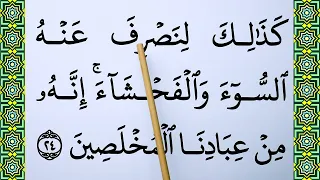 كَذَٰلِكَ لِنَصۡرِفَ عَنۡهُ
ٱلسُّوٓءَ وَٱلۡفَحۡشَآءَۚ إِنَّهُۥ
مِنۡ عِبَادِنَا ٱلۡمُخۡلَصِينَ ٢٤